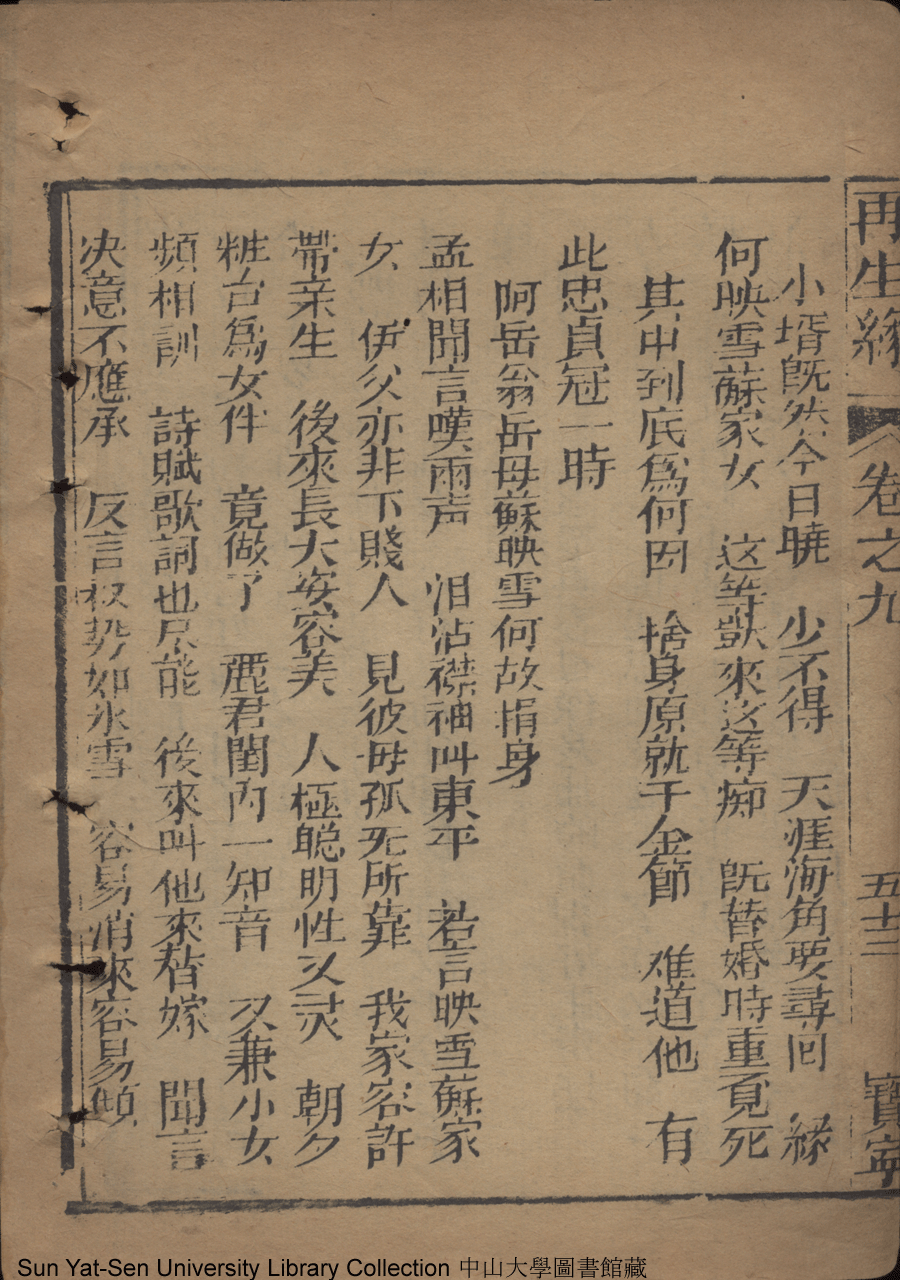 再生緣 卷之九 五十二 寶寧
小壻旣然今日曉 少不得 天涯海角要尋囘 緣
何映雪蘇家女 这等獃來这等痴 旣替婚時重覔死
其中到底爲何因 捨身原就于金節 难道他 有
此忠貞冠一時
阿岳翁岳母蘇映雪何故捐身
孟相聞言嘆兩声 泪沾襟袖叫東平 若言映雪蘇家
女 伊父亦非下賤人 見彼母孤无所靠 我家容許
帶来生 後來長大姿容美 人極聪明性又灵 朝夕
粧台爲女伴 竟做了 麗君閨内一知音 又兼小女
頻相訓 詩賦歌詞也尽能 後來叫他來替嫁 聞言
决意不應承 反言权势如氷雪 容易消來容易傾
Sun Yat-Sen University Library Collection 中山大學圖書館藏